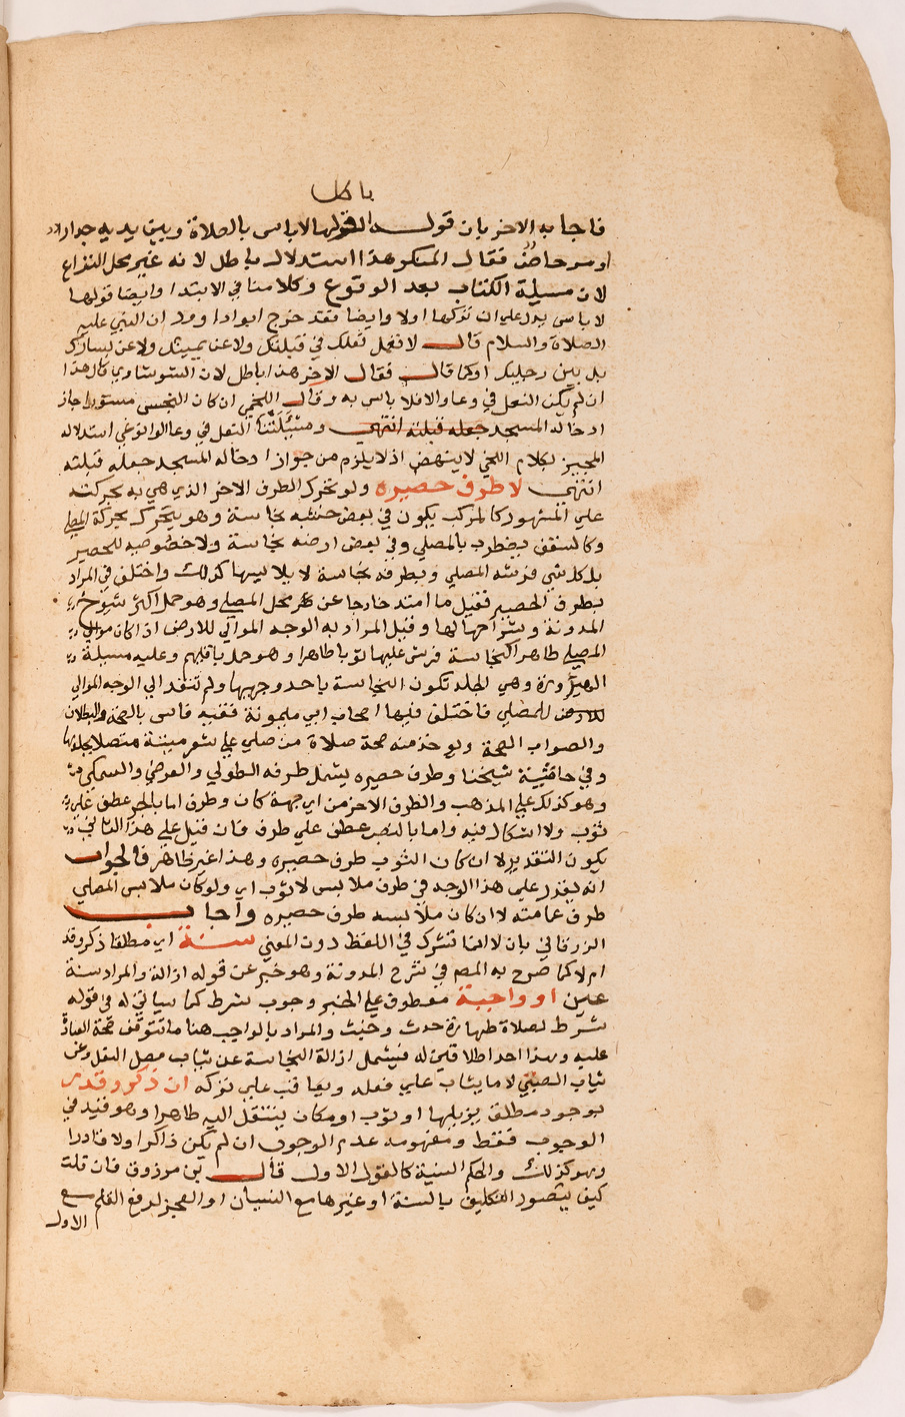 فاجابه الاخر بان قولـه لقولها لا باس بالصلاة وبين يديه جدار او
او مرحاض فقال المنكر هذا استدلال باطل لانه غير محل النزاع
لان مسيلة الكتاب بعد الوقوع وكلامنا في الابتدا وايضا قولها
لا باس يدل علي ان تركها اولا وايضا فقد خرج ابو داوود ان النبي عليه
الصلاة والسلام قال لا تجعل نعلك في قبلتك ولا عن يمينك ولا عن يسارك
بل بين رجليك او كما قال فقال الاخر هذا باطل لان الشوشاوي قال هذا
ان لم يكن النعل في وعا والا فلا باس به وقال اللخمي ان كان النجس مستورا جاز
ادخاله المسجد جعله قبلته انتهي ومسيلتنا النعل في وعا الوانوغي استدلاله
المجيز بكلام اللخمي لا ينهض اذ لا يلزم من جواز ادخاله المسجد جعله قبلته
انتهي لا طرف حصيره ولو تحرك الطرف الاخر الذي هي به بحركته
علي المشهور كالمركب يكون في بعض خشبه نجاسة وهو يتحرك بحركة المصلي
وكالسقف يضطرب بالمصلي وفي بعض ارضه نجاسة ولا خصوصيه للحصير
بل كل شي فرشه المصلي وبطرفه نجاسة لا يلابسها كذلك واختلف في المراد
بطرف الحصير فقيل ما امتد خارجا عن محل المصلي وهو حمل اكثر شيوخ
المدونة وشراحها لها وقيل المراد به الوجه الموالي للارض اذا كان موالي
المصلي طاهرا كنجاسة فرش عليها ثوبا طاهرا وهو حمل باقيهم وعليه مسيلة
الهيدورة وهي الجلد تكون النجاسة باحد وجهيها ولم تنفذ الي الوجه الموالي
للمصلي فاختلف فيها اصحاب ابي ميمونة ففيه فاس بالصحة والبطلان
والصواب الصحة ويوخذ منه صحة صلاة من صلي علي شعر ميتة متصلا بجلدها
وفي حاشية شيخنا وطرف حصيره يشمل طرفه الطولي والعرضي والسمكي
وهو كذلك علي المذهب والطرف الاخر من اي جهة كان وطرف اما بالجر عطف علي
ثوب ولا اشكال فيه واما بالنصب عطف علي طرف فان قيل علي هذا الثاني
يكون التقدير لا ان كان الثوب طرف حصيره وهذا غير ظاهر فالجواب
انه يقدر علي هذا الوجه في طرف ملابس لا ثوب اي ولو كان ملابس المصلي
طرف عمامته لا ان كان ملابسه طرف حصيره واجاب
الزرقاني بان لا انما تشرك في اللفظ دون المعني سنة اي مطلقا ذكر وقد
ام لا كما صرح به المص في شرح المدونة وهو خبر عن قوله ازالة والمراد سنة
عين او واجبة معطوف علي الخبر وجوب شرط كما سياتي له في قوله
شرط لصلاة طهارة حدث وخبث والمراد بالواجب هنا ما تتوقف صحة العبادة
عليه وهذا احد اطلاقين له فيشمل ازالة النجاسة عن ثياب مصلي النفل وعن
ثياب الصبي لا ما يثاب علي فعله ويعاقب علي تركه ان ذكر وقدر
بوجود مطلق يزيلها او ثوب او مكان ينتقل اليه طاهرا وهو قيد في
الوجوب فقط ومفهومه عدم الوجوب ان لم يكن ذاكرا ولا قادرا
وهو كذلك والحكم السنية كالقول الاول قال بن مرزوق فان قلت
كيف يتصور التكليف بالسنة او غيرها مع النسيان او العجز لرفع القلم مع
الاول